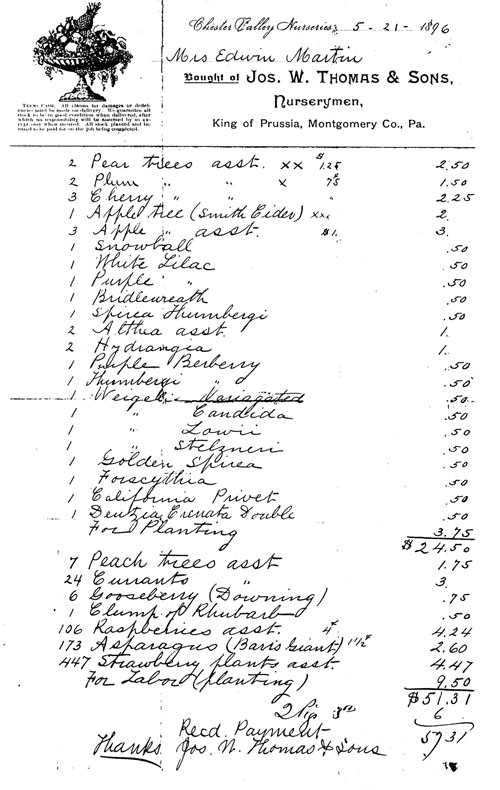 Chester Valley Nurseries, 5-21-1896
Mrs Edwin Martin
Bought of Jos. W. Thomas & Sons,
Nurserymen,
King of Prussia, Montgomery Co., Pa.
Terms Cash. All claims for damages or deficiencies must be made on delivery. We guarantee all
stock to be in good condition when delivered, after
which no responsibility will be assumed by us except
only when insured. All stock planted and insured
to be paid for on the job being completed.
2 Pear trees asst. xx $1.25 2.50
2 Plum " " x 75 1.50
3 Cherry " " " 2.25
1 Apple tree (Smith Cider) xxx 2.
3 Apple " asst. $1. 3.
1 Snowball .50
1 White Lilac .50
1 Purple " .50
1 Bridlewreath .50
1 Spirea Thumbergi .50
2 Althea asst 1.
2 Hydrangia 1.
1 Purple Berberry .50
1 Thumbergi " .50
1 Weigelia Variagated .50
1 " Candida .50
1 " Lowii .50
1 " Stelzneri .50
1 Golden Spirea .50
1 Forscythia .50
1 California Privet .50
1 Deutzia Crenata Double .50
For Planting 3.75
$24.50
7 Peach trees asst 1.75
24 Currants " 3.
6 Gooseberry (Downing) .75
1 Clump of Rhubarb .50
106 Raspberries asst. 4¢ 4.24
173 Asparagus (Barrs Giant) 1½¢ 2.60
447 Strawberry plants asst. 4.47
For Labor (planting) 9.50
$51.31
2 Pigs 3.00 6
57 31
Recd. Payment
Thanks Jos. W. Thomas & Sons